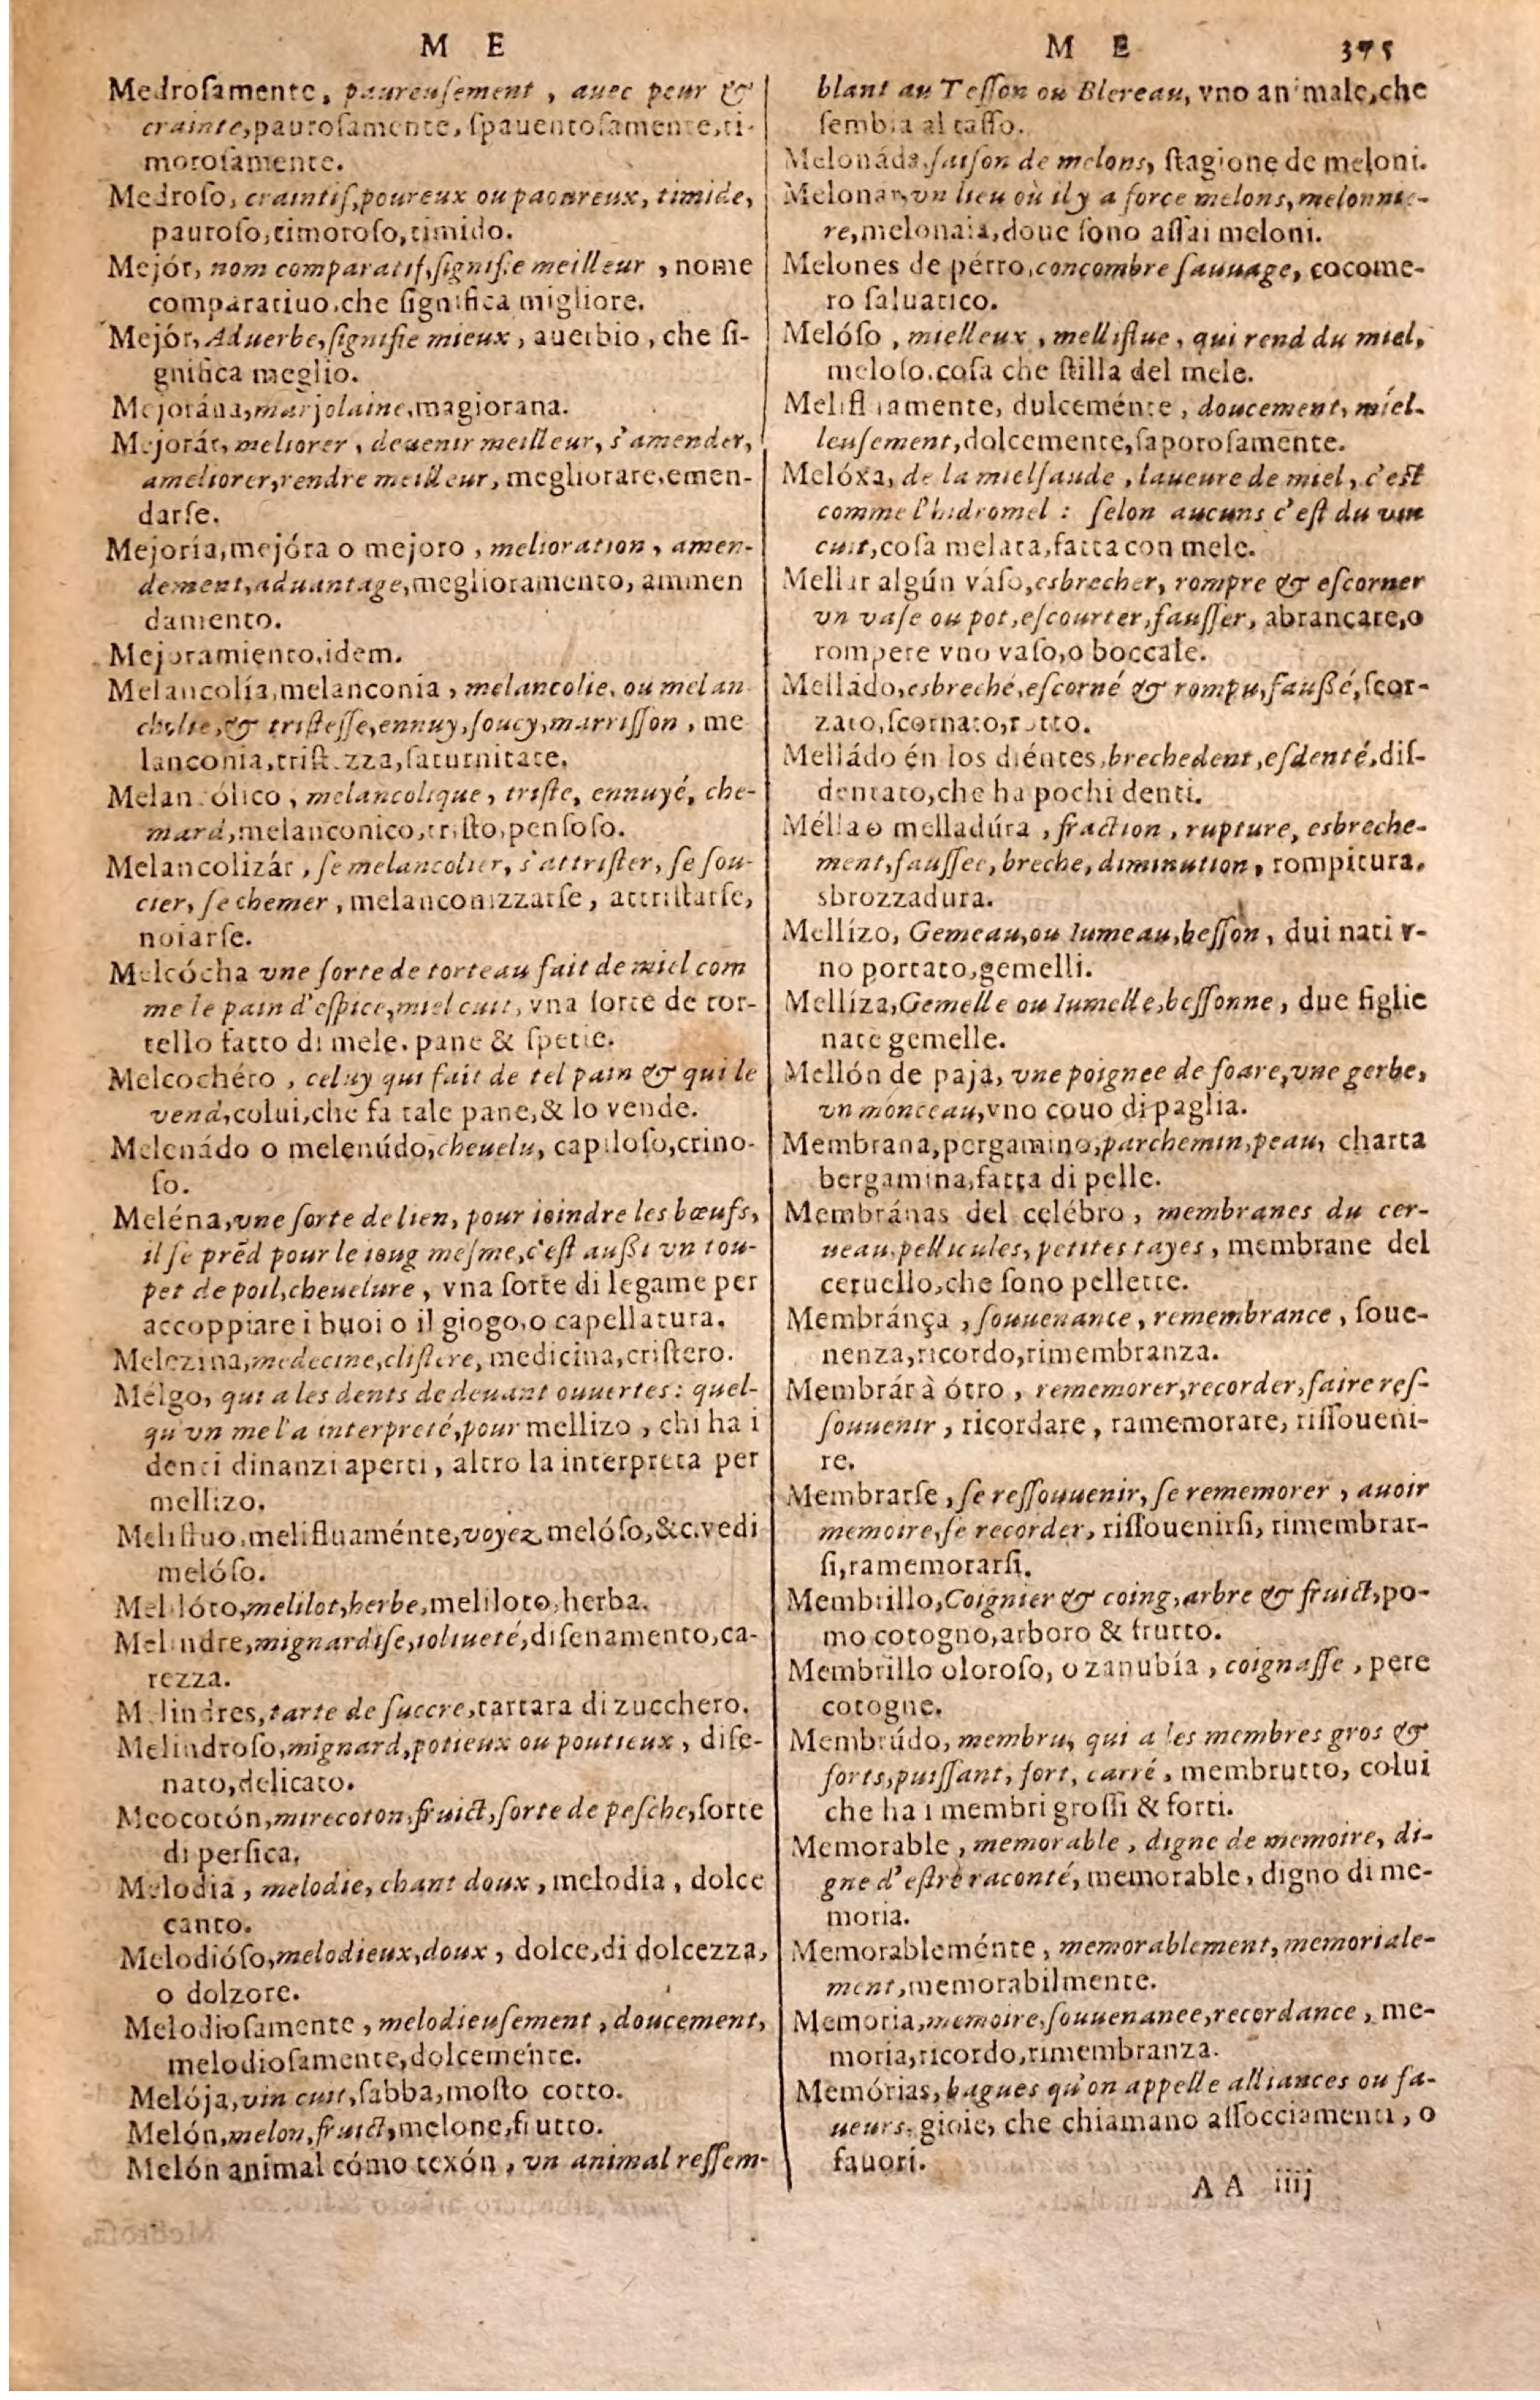 M E
Medrosamente, paureusement, auec peur &
crainte, paurosamente, spauentosamente, ti-
morosamente.
Medroso, craintif, poureux ou paoureux, timide,
pauroso, timoroso, timido.
Mejór, nom comparatif, signifie meilleur, nome
comparatiuo, che significa migliore.
Mejór, Aduerbe, signifie mieux, auerbio, che si-
gnifica meglio.
Mejorána, marjolaine, magiorana.
Mejorár, meliorer, deuenir meilleur, s'amender,
ameliorer, rendre meilleur, megliorare, emen-
darse.
Mejoría, mejóra o mejoro, melioration, amen-
dement, aduantage, meglioramento, ammen
damento.
Mejoramiento, idem.
Melancolía, melanconia, melancolie, ou melan
cholie, & tristesse, ennuy, soucy, marrisson, me
lanconia, tristezza, saturnitate.
Melancólico, melancolique, triste, ennuyé, che-
mard, melanconico, tristo, pensoso.
Melancolizár, se melancolier, s'attrister, se sou-
cier, se chemer, melanconizzarse, attristarse,
noiarse.
Melcócha vne sorte de torteau fait de miel com
me le pain d'espice, miel cuit, vna sorte de tor-
tello fatto di mele, pane & spetie.
Melcochéro, celuy qui fait de tel pain & qui le
vend, colui, che fa tale pane, & lo vende.
Melenádo o melenúdo, cheuelu, capiloso, crino-
so.
Meléna, vne sorte de lien, pour ioindre les bœufs,
il se prẽd pour le ioug mesme, c'est aussi vn tou-
pet de poil, cheuelure, vna sorte di legame per
accoppiare i buoi o il giogo, o capellatura.
Melezina, medecine, clistere, medicina, cristero.
Mélgo, qui a les dents de deuant ouuertes: quel-
qu'vn me l'a interpreté, pour mellizo, chi ha i
denti dinanzi aperti, altro la interpreta per
mellizo.
Melifluo, melifluaménte, voyez melóso, &c. vedi
melóso.
Melilóto, melilot, herbe, meliloto, herba.
Melindre, mignardise, ioliueté, disenamento, ca-
rezza.
Melindres, tarte de succre, tartara di zucchero.
Melindroso, mignard, potieux ou poutieux, dise-
nato, delicato.
Meocotón, mirecoton, fruict, sorte de pesche, sorte
di persica.
Melodia, melodie, chant doux, melodia, dolce
canto.
Melodióso, melodieux, doux, dolce, di dolcezza,
o dolzore.
Melodiosamente, melodieusement, doucement,
melodiosamente, dolcemente.
Melója, vin cuit, sabba, mosto cotto.
Melón, melon, fruict, melone, frutto.
Melón animal cómo texón, vn animal ressem-
M E 375
blant au Tesson ou Blereau, vno animale, che
sembia al tasso.
Melonáda, saison de melons, stagione de meloni.
Melonar, vn lieu où il y a force melons, melonnie-
re, melonaia, doue sono assai meloni.
Melones de pérro, concombre sauuage, cocome-
ro saluatico.
Melóso, mielleux, melliflue, qui rend du miel,
meloso, cosa che stilla del mele.
Melifluamente, dulceménte, doucement, miel-
leusement, dolcemente, saporosamente.
Melóxa, de la mielsaude, laueure de miel, c'est
comme l'hidromel: selon aucuns c'est du vin
cuit, cosa melata, fatta con mele.
Mellar algún váso, esbrecher, rompre & escorner
vn vase ou pot, escourter, fausser, abrancare, o
rompere vno vaso, o boccale.
Melládo, esbreché, escorné & rompu, faussé, scor-
zato, scornato, rotto.
Melládo én los diéntes, brechedent, esdenté, dis-
dentato, che ha pochi denti.
Mélla o melladúra, fraction, rupture, esbreche-
ment, faussee, breche, diminution, rompitura,
sbrozzadura.
Mellízo, Gemeau, ou Iumeau, besson, dui nati v-
no portato, gemelli.
Mellíza, Gemelle ou Iumelle, bessonne, due figlie
nate gemelle.
Mellón de paja, vne poignee de foare, vne gerbe,
vn monceau, vno couo di paglia.
Membrana, pergamino, parchemin, peau, charta
bergamina, fatta di pelle.
Membránas del celébro, membranes du cer-
ueau, pellicules, petites tayes, membrane del
ceruello, che sono pellette.
Membránça, souuenance, remembrance, soue-
nenza, ricordo, rimembranza.
Membrár à ótro, rememorer, recorder, faire res-
souuenir, ricordare, ramemorare, rissoueni-
re.
Membrarse, se ressouuenir, se rememorer, auoir
memoire, se recorder, rissouenirsi, rimembrar-
si, ramemorarsi.
Membrillo, Coignier & coing, arbre & fruict, po-
mo cotogno, arboro & frutto.
Membrillo oloroso, o zanubía, coignasse, pere
cotogne.
Membrúdo, membru, qui a les membres gros &
forts, puissant, fort, carré, membrutto, colui
che ha i membri grossi & forti.
Memorable, memorable, digne de memoire, di-
gne d'estre raconté, memorable, digno di me-
moria.
Memorableménte, memorablement, memoriale-
ment, memorabilmente.
Memoria, memoire, souuenanee, recordance, me-
moria, ricordo, rimembranza.
Memórias, bagues qu'on appelle alliances ou fa-
ueurs, gioie, che chiamano assocciamenti, o
fauori.
AA iiij